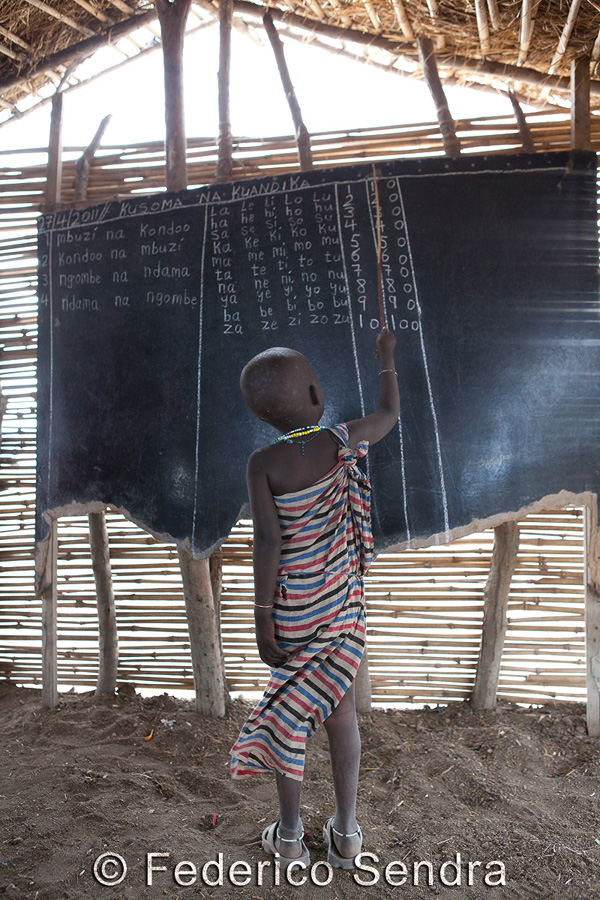 27/4/2011// KUSOMA NA KUANDIKA
1 mbuzi na Kondoo
2 Kondoo na mbuzi
3 ngombe na ndama
4 ndama na ngombe
La Le Li Lo Lu
ha he hi ho hu
sa se si so su
Ka Ke Ki Ko Ku
ma me mi mo mu
ta te ti to tu
na ne ni no nu
ya ye yi yo yu
ba be bi bo bu
za ze zi zo zu
1
2
3
4
5
6
7
8
9
10
80
90
100
© Federico Sendra